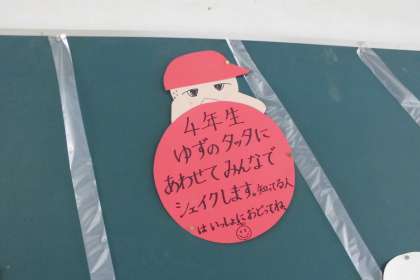 4年生
ゆずのタッタに
あわせてみんなで
シェイクします。知ってる人
はいっしょにおどってね